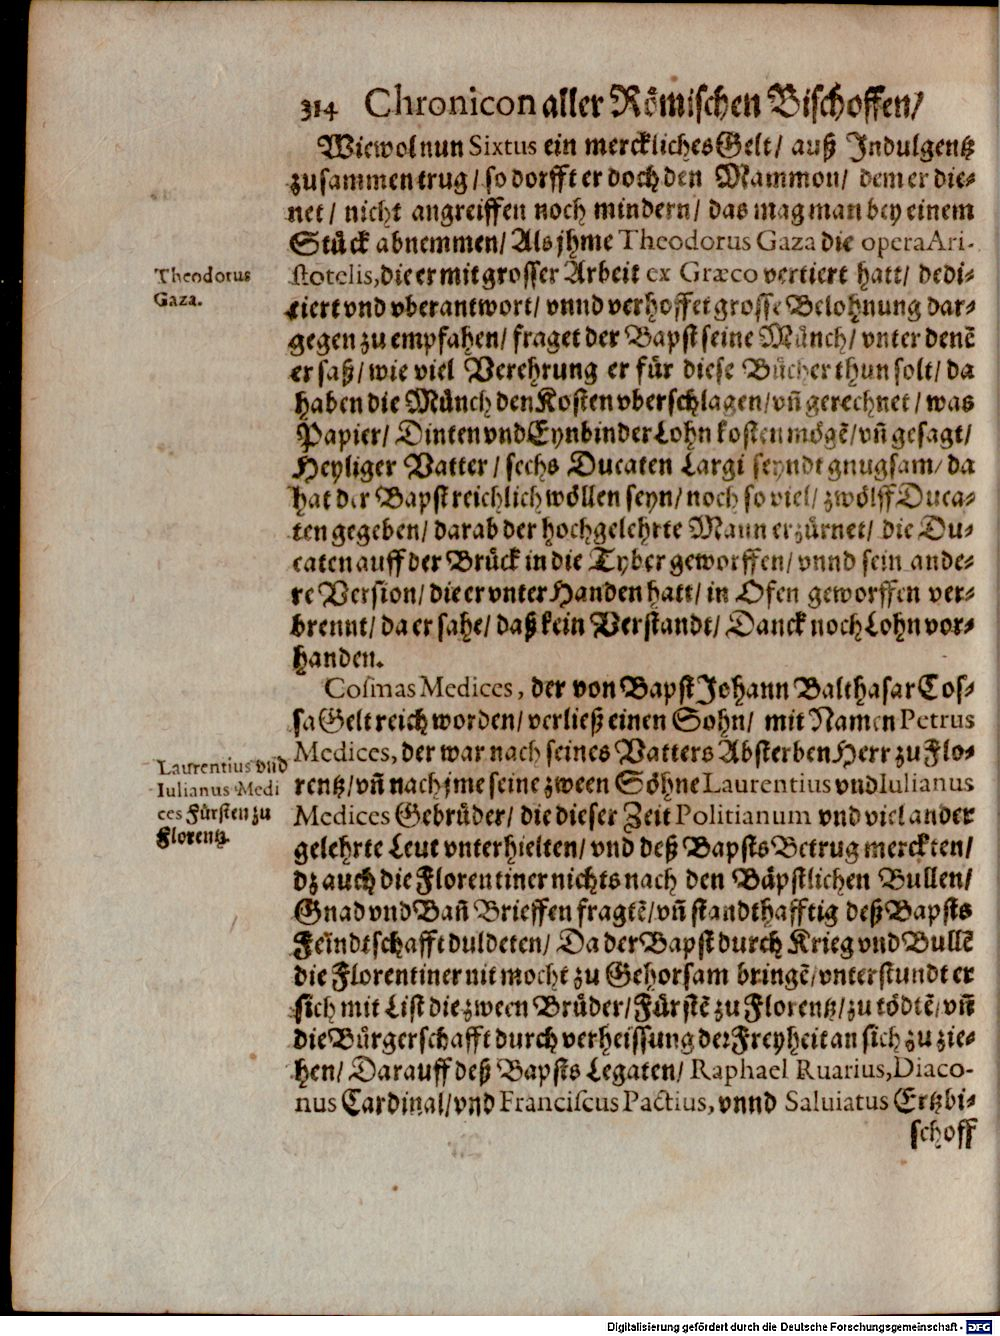 314 Chronicon aller Römischen Bischoffen/
Wiewol nun Sixtus ein merckliches Gelt/ auß Indulgentz
zusammen trug/ so dorfft er doch den Mammon/ dem er die⸗
net/ nicht angreiffen noch mindern/ das mag man bey einem
Stück abnemmen/ Als jhme Theodorus Gaza die opera Ari-
stotelis, die er mit grosser Arbeit ex Græco vertiert hatt/ dedi⸗
tiert vnd vberantwort/ vnnd verhoffet grosse Belohnung dar⸗
gegen zu empfahen/ fraget der Bapst seine Münch/ vnter denē
er saß/ wie viel Verehrung er für diese Bücher thun solt/ da
haben die Münch den Kosten vberschlagen/ vn̄ gerechnet/ was
Papier/ Dinten vnd Eynbinder Lohn kosten mögē/ vn̄ gesagt/
Heyliger Vatter/ sechs Ducaten Largi seyndt gnugsam/ da
hat der Bapst reichlich wöllen seyn/ noch so viel/ zwölff Duca⸗
ten gegeben/ darab der hochgelehrte Mann erzürnet/ die Du⸗
caten auff der Brück in die Tyber geworffen/ vnnd sein ande⸗
re Version/ die er vnter Handen hatt/ in Ofen geworffen ver⸗
brennt/ da er sahe/ daß kein Verstandt/ Danck noch Lohn vor⸗
handen.
Cosmas Medices, der von Bapst Johann Balthasar Cos⸗
sa Gelt reich worden/ verließ einen Sohn/ mit Namen Petrus
Medices, der war nach seines Vatters Absterben Herr zu Flo⸗
rentz/ vn̄ nach jme seine zween Söhne Laurentius vnd Iulianus
Medices Gebrüder/ die dieser Zeit Politianum vnd viel ander
gelehrte Leut vnterhielten/ vnd deß Bapsts Betrug merckten/
dz auch die Florentiner nichts nach den Bäpstlichen Bullen/
Gnad vnd Ban̄ Brieffen fragtē/ vn̄ standthafftig deß Bapsts
Feindtschafft duldeten/ Da der Bapst durch Krieg vnd Bullē
die Florentiner nit mocht zu Gehorsam bringē/ vnterstundt er
sich mit List die zween Brüder/ Fürstē zu Florentz/ zu tödtē/ vn̄
die Bürgerschafft durch verheissung der Freyheit an sich zu zie⸗
hen/ Darauff deß Bapsts Legaten/ Raphael Ruarius, Diaco-
nus Cardinal/ vnd Franciscus Pactius, vnnd Saluiatus Ertzbi⸗
schoff
Theodorus
Gaza.
Laurentius vnd
Iulianus Medi
ces Fürsten zu
Florentz.
Digitalisierung gefördert durch die Deutsche Forschungsgemeinschaft - DFG